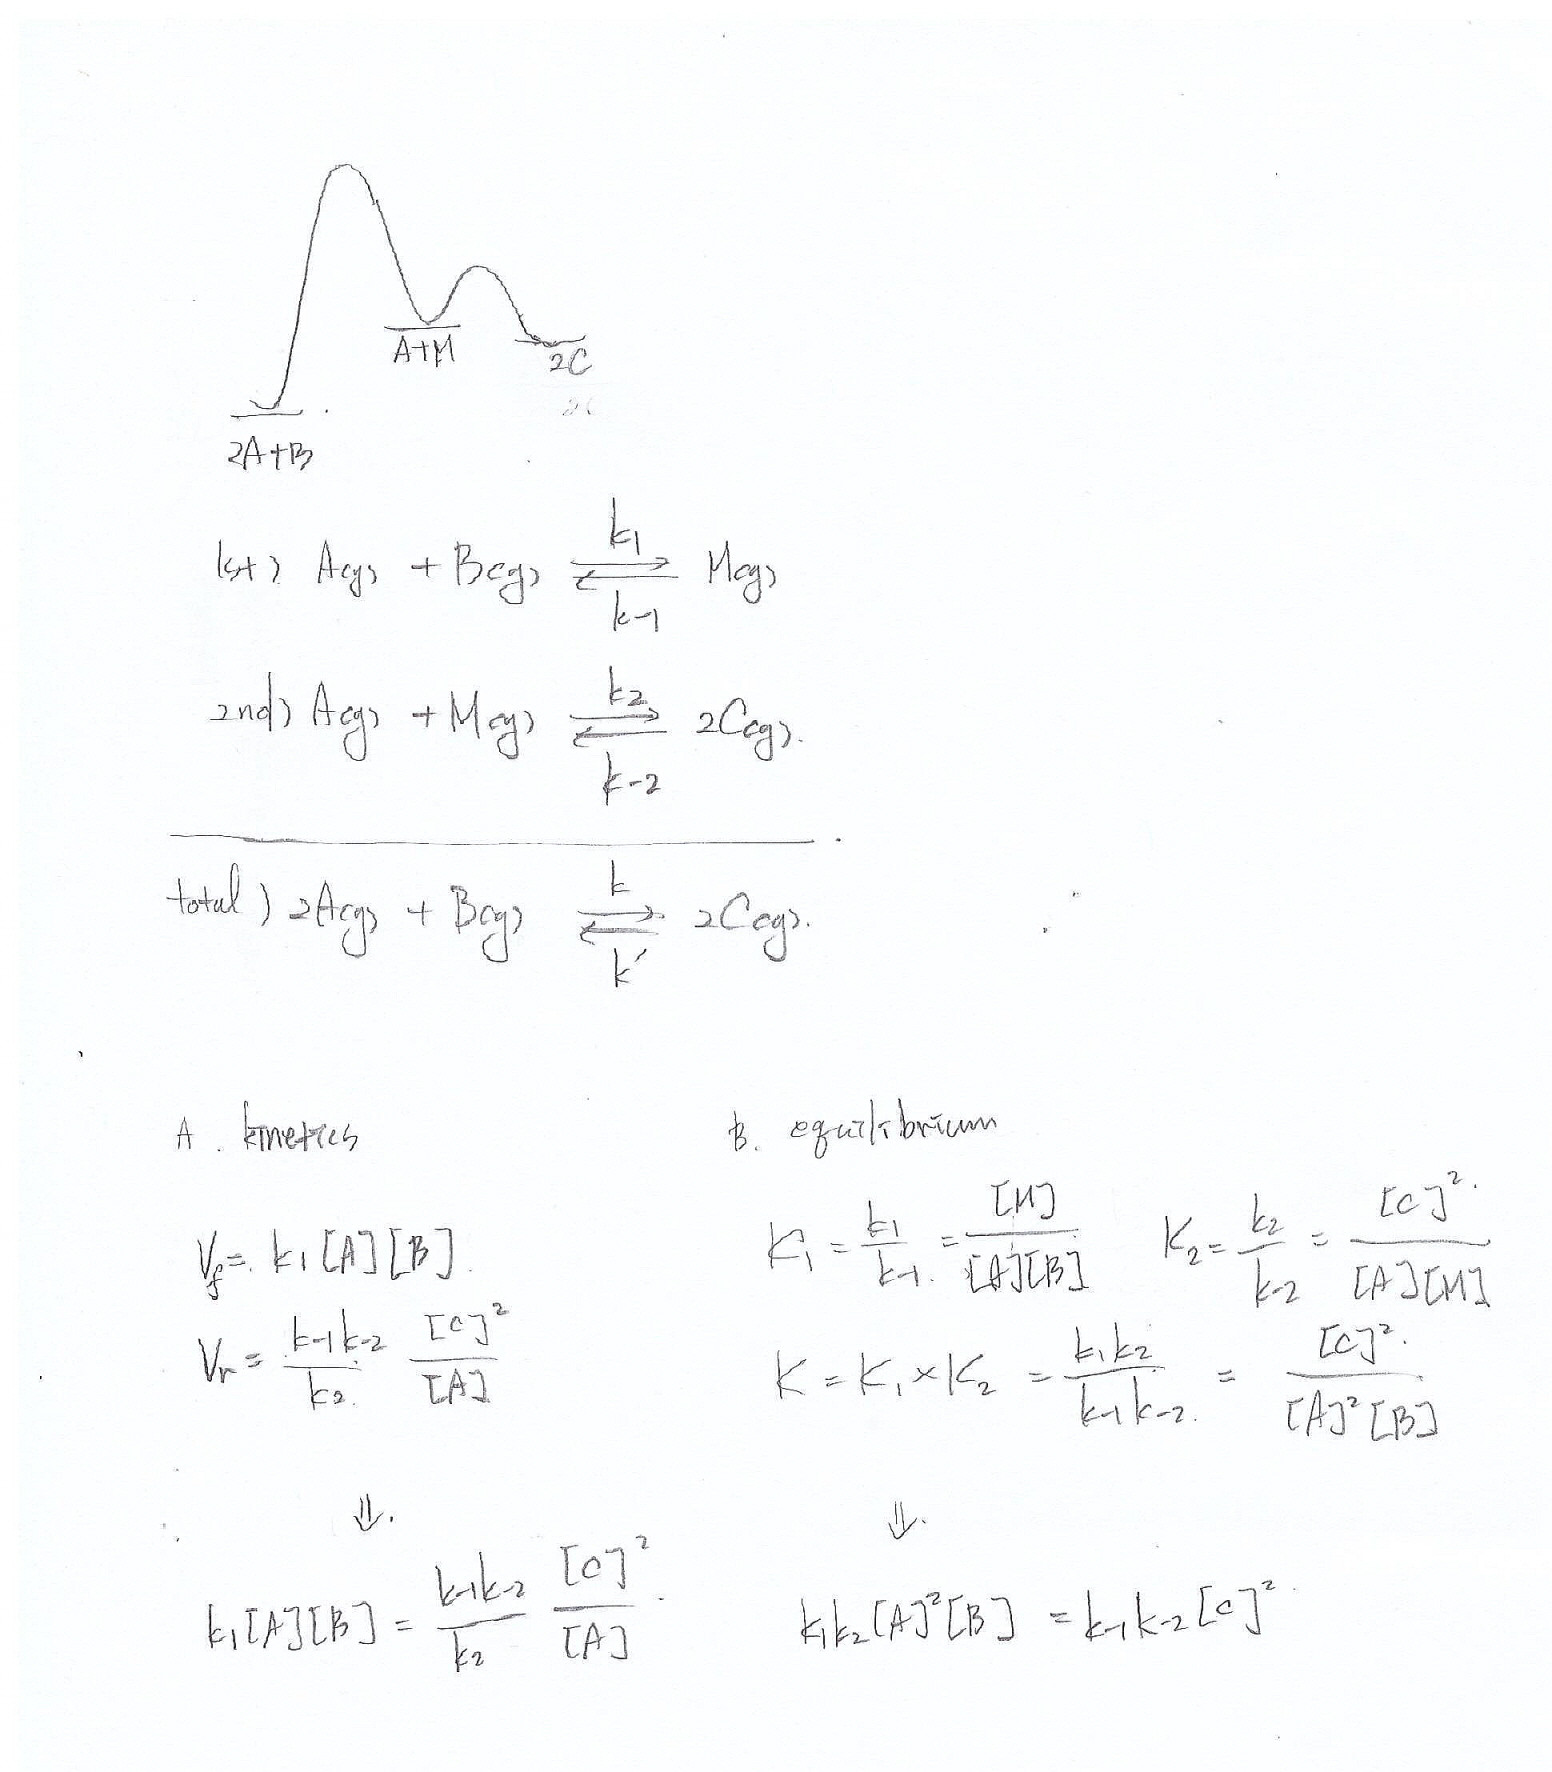 A+M
2C
2C
2A+B
1st) A(g) + B(g) ⇌ M(g)
k1
k-1
2nd) A(g) + M(g) ⇌ 2C(g).
k2
k-2
total) 2A(g) + B(g) ⇌ 2C(g).
k
k'
A. kinetics
Vf = k1[A][B].
Vr = k-1k-2/k2. [C]²/[A]
⇓.
k1[A][B] = k-1k-2/k2 [C]²/[A].
B. equilibrium
K1 = k1/k-1. = [M]/[A][B] K2 = k2/k-2 = [C]²./[A][M]
K = K1 × K2 = k1k2/k-1k-2. = [C]²./[A]²[B]
⇓.
k1k2[A]²[B] = k-1k-2[C]².